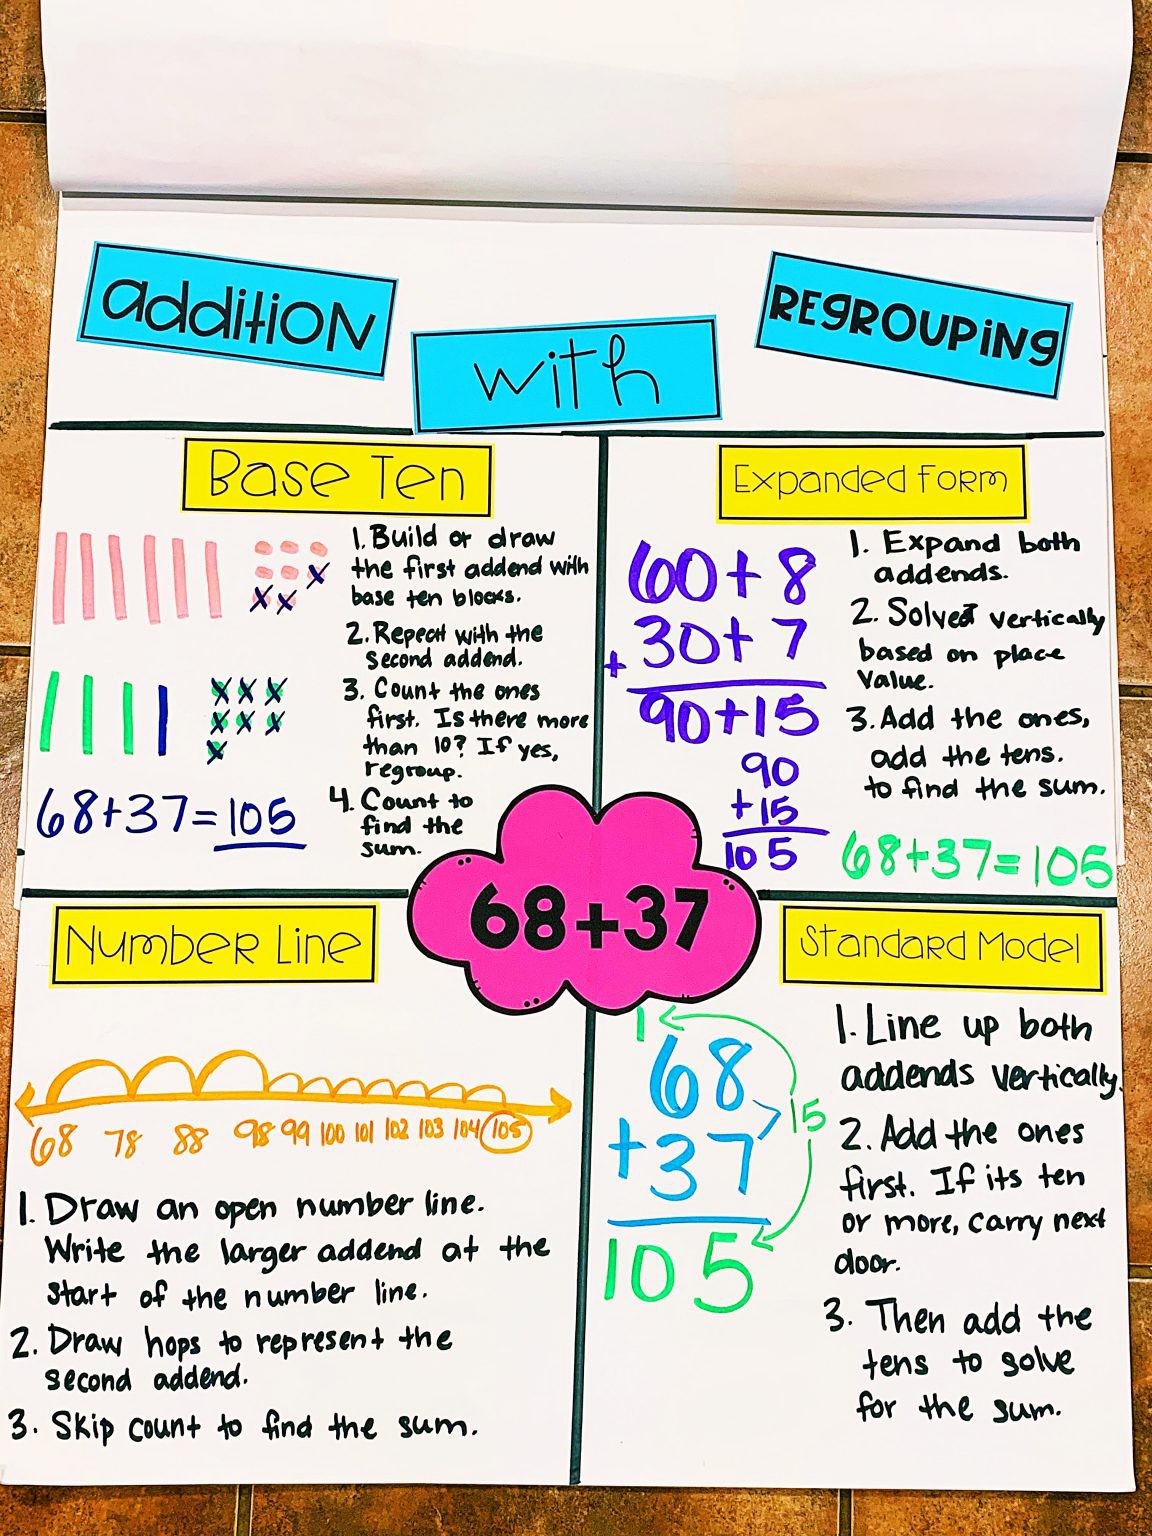 addition
with
REGROUPING
Base Ten
1. Build or draw
the first addend with
base ten blocks.
2. Repeat with the
second addend.
3. Count the ones
first. Is there more
than 10? If yes,
regroup.
4. Count to
find the
sum.
68+37=105
Expanded Form
60+8
+ 30+7
90+15
90
+15
105
1. Expand both
addends.
2. Solved vertically
based on place
value.
3. Add the ones,
add the tens.
to find the sum.
68+37=105
68+37
Number Line
68 78 88 98 99 100 101 102 103 104 105
1. Draw an open number line.
Write the larger addend at the
start of the number line.
2. Draw hops to represent the
second addend.
3. Skip count to find the sum.
Standard Model
1
68
+37
15
105
1. Line up both
addends vertically.
2. Add the ones
first. If its ten
or more, carry next
door.
3. Then add the
tens to solve
for the sum.